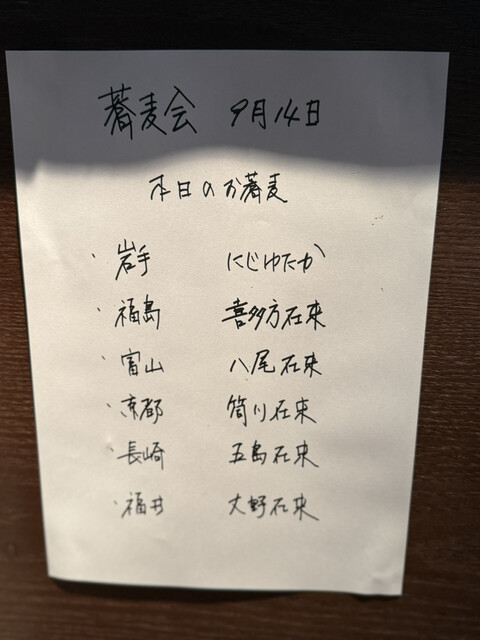 蕎麦会 9月14日
本日のお蕎麦
・岩手 にじゆたか
・福島 喜多方在来
・富山 八尾在来
・京都 筒川在来
・長崎 五島在来
・福井 大野在来